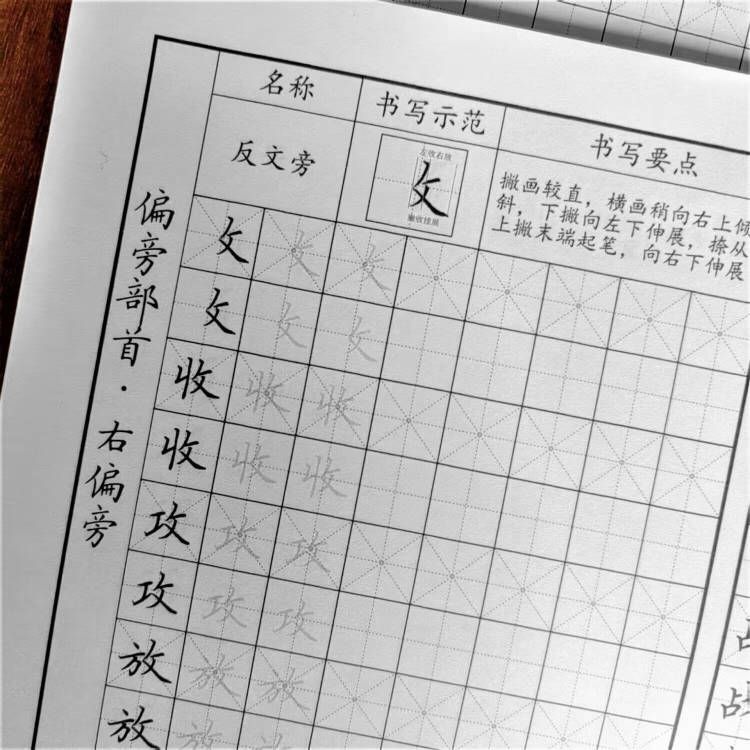 偏旁部首·右偏旁
名称
书写示范
书写要点
反文旁
左收右放
攵
撇收捺展
撇画较直，横画稍向右上倾
斜，下撇向左下伸展，捺从
上撇末端起笔，向右下伸展
攵 攵 攵
攵 攵 攵
收 收 收
收 收 收
攻 攻 攻
攻 攻 攻
放 放 放
放 放 放